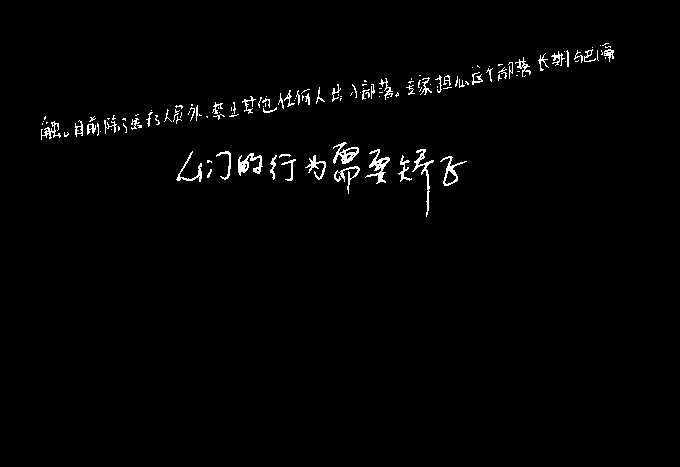 触。目前除了医务人员外,禁止其他任何人出入部落。专家担心这个部落长期与世隔
人们的行为需要矫正